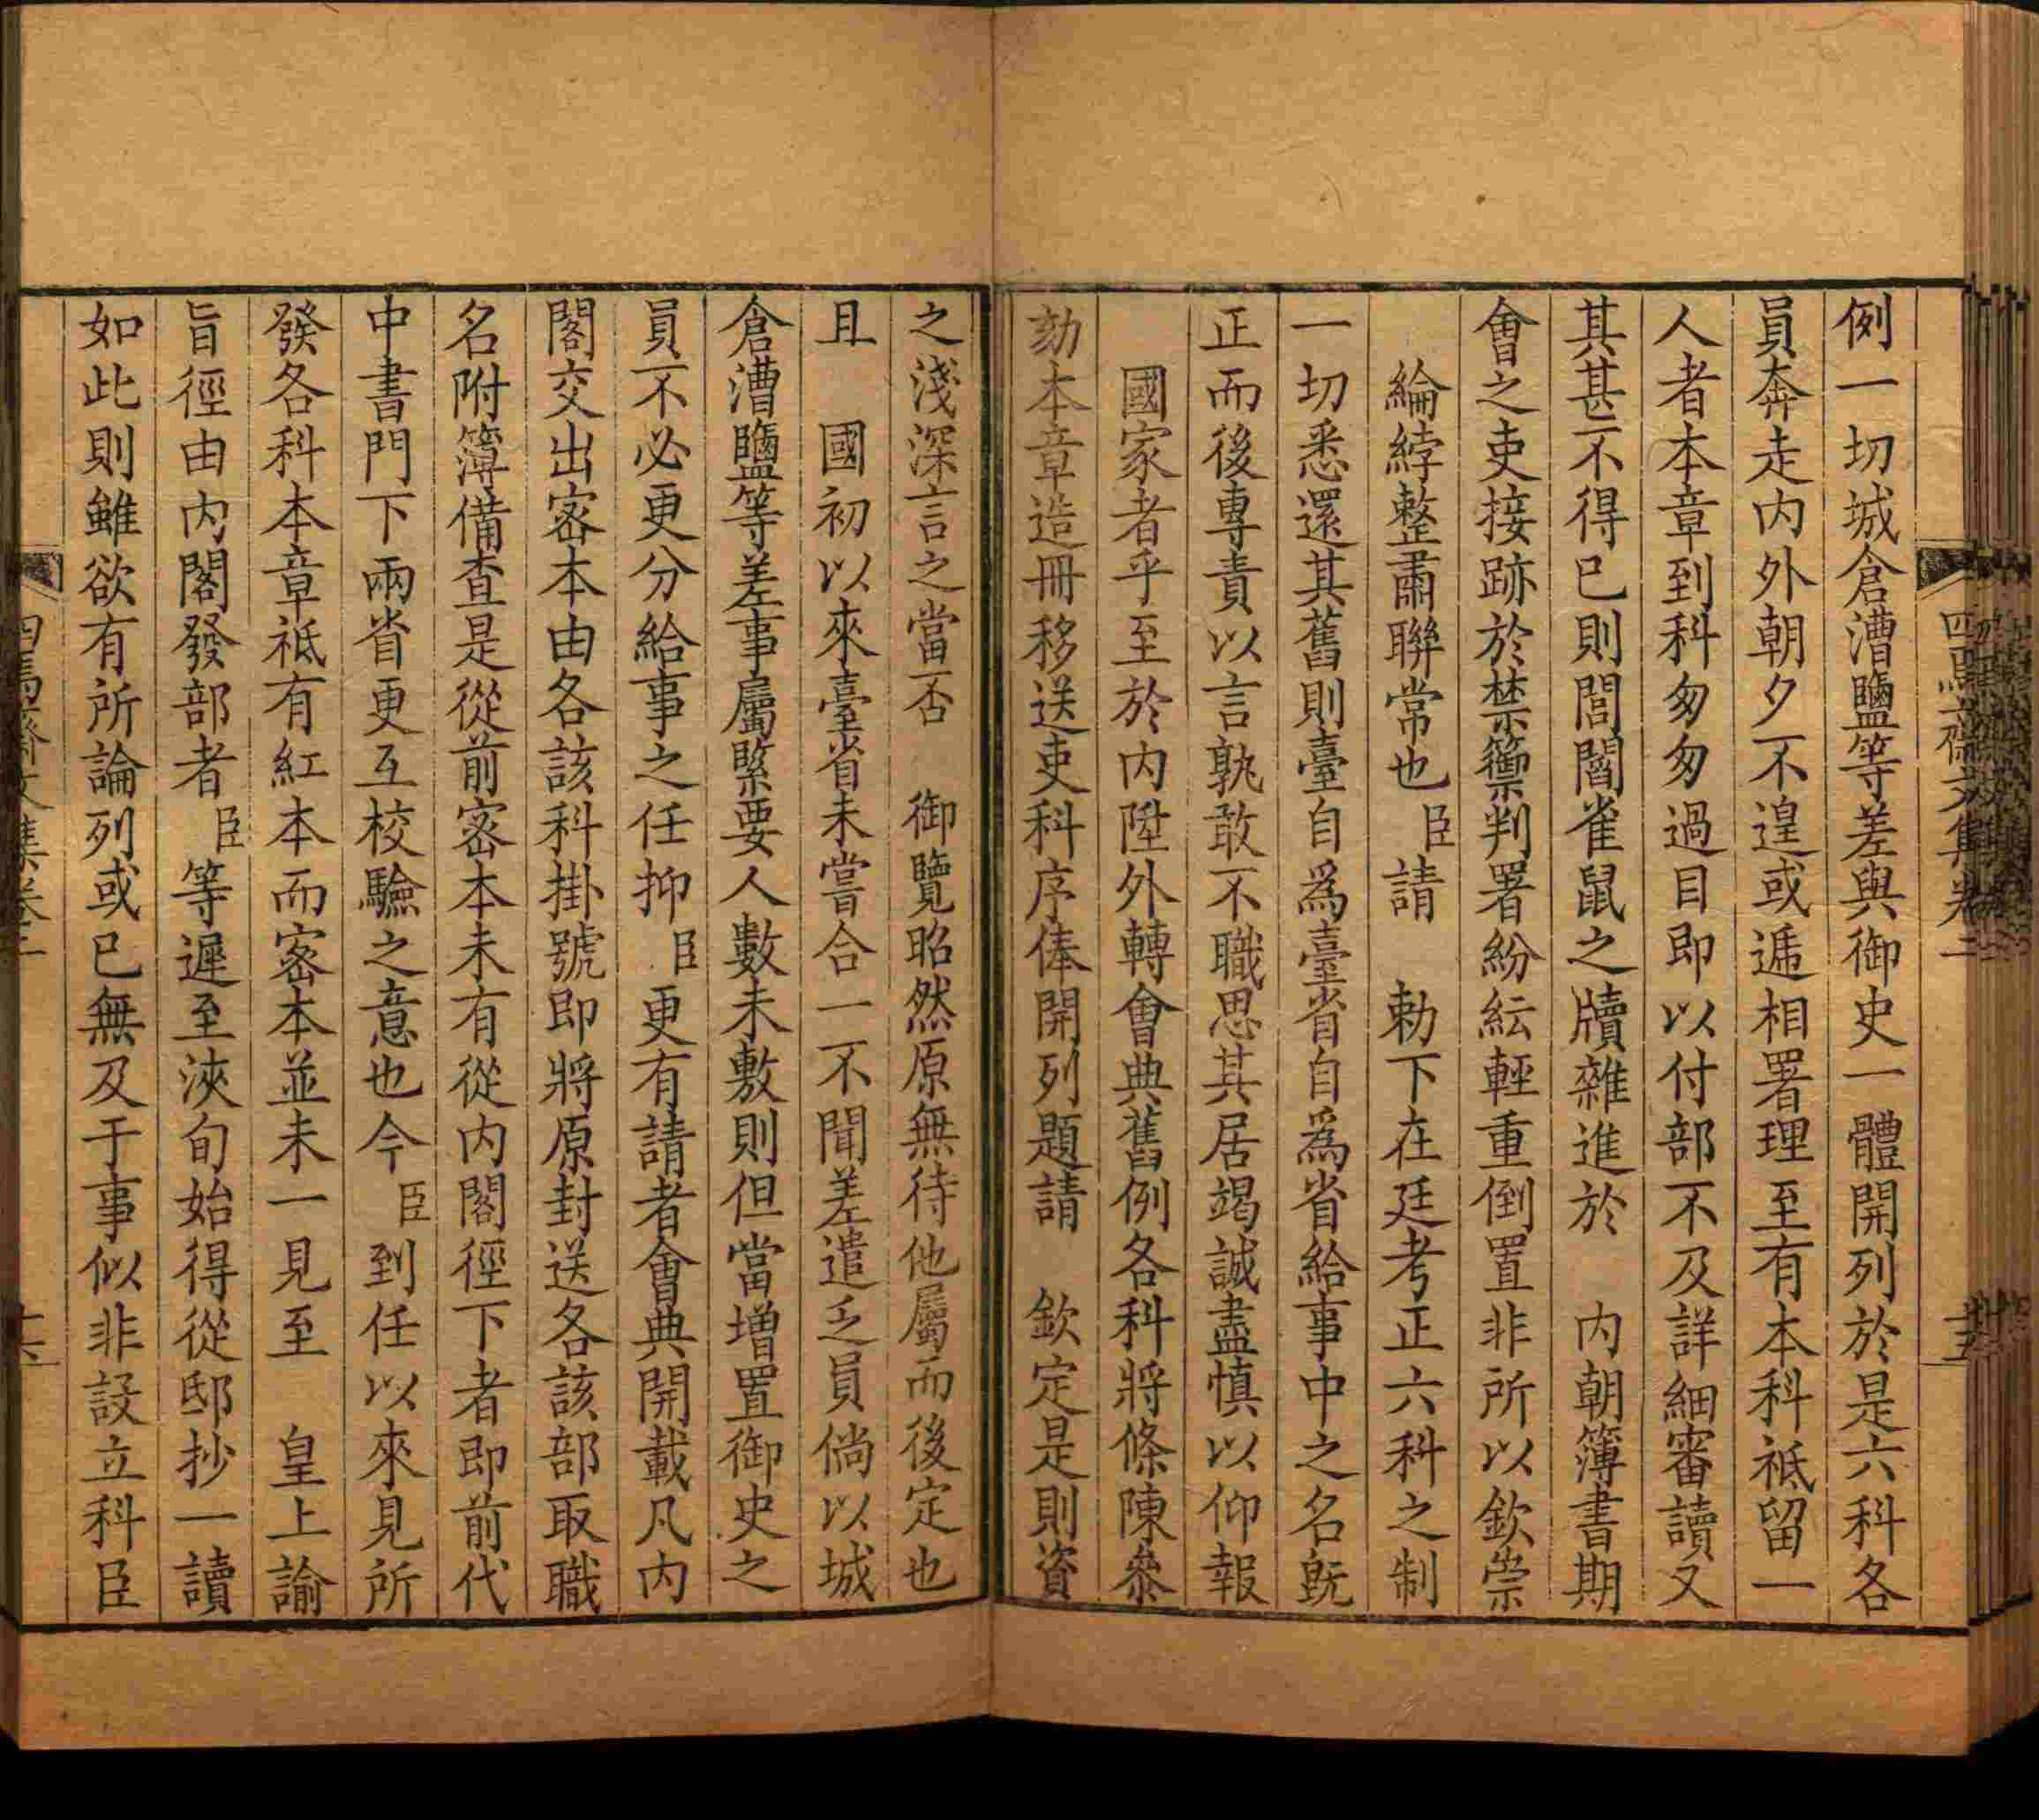 例一切城倉漕鹽等差與御史一體開列於是六科各
員奔走内外朝夕不遑或遞相署理至有本科祗留一
人者本章到科匆匆過目即以付部不及詳細審讀又
其甚不得已則閭閻雀鼠之牘雜進於　内朝簿書期
會之吏接跡於禁籞判署紛紜輕重倒置非所以欽崇
綸綍整肅聯常也臣請　勅下在廷考正六科之制
一切悉還其舊則臺自爲臺省自爲省給事中之名旣
正而後專責以言孰敢不職思其居竭誠盡慎以仰報
國家者乎至於内陞外轉會典舊例各科將條陳叅
劾本章造冊移送吏科序俸開列題請　欽定是則資
之淺深言之當否　御覽昭然原無待他屬而後定也
且　國初以來臺省未嘗合一不聞差遣乏員倘以城
倉漕鹽等差事屬緊要人數未敷則但當增置御史之
員不必更分給事之任抑臣更有請者會典開載凡内
閣交出宻本由各該科掛號即將原封送各該部取職
名附簿備查是從前宻本未有從内閣徑下者即前代
中書門下兩省更互校驗之意也今臣到任以來見所
發各科本章祗有紅本而宻本並未一見至　皇上諭
旨徑由内閣發部者臣等遲至浹旬始得從邸抄一讀
如此則雖欲有所論列或已無及于事似非設立科臣
四焉齋文集卷二